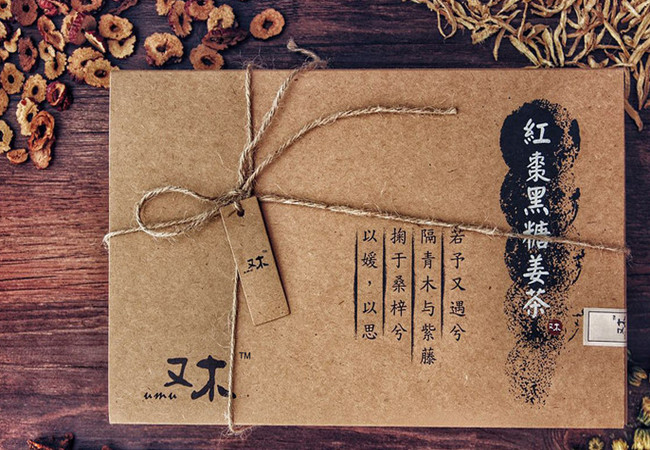 紅棗黑糖姜茶
又木
若予又遇兮
隔青木与紫藤
掬于桑梓兮
以媛，以思
又木
又木™
umu